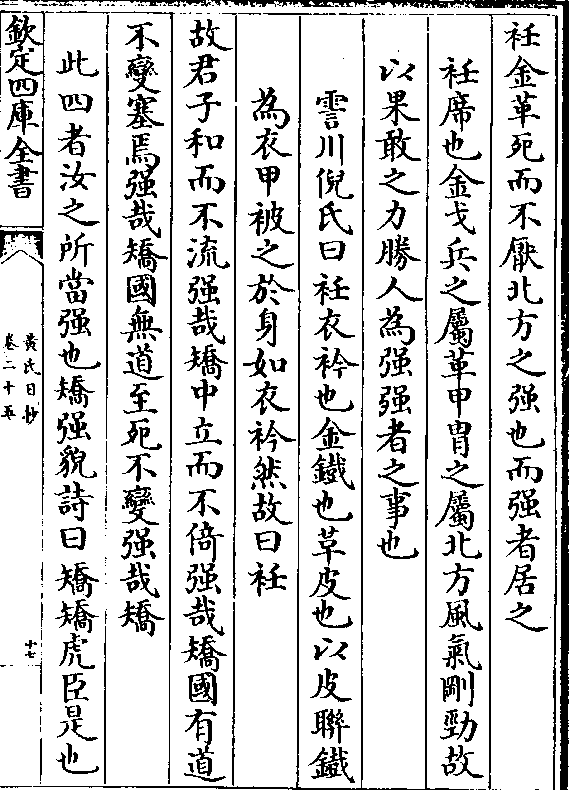 衽金革死而不厭北方之强也而强者居之
衽席也金戈兵之屬革甲胄之屬北方風氣剛勁故
以果敢之力勝人為强强者之事也
霅川倪氏曰衽衣衿也金鐵也革皮也以皮聯鐵
為衣甲被之於身如衣衿然故曰衽
故君子和而不流强哉矯中立而不倚强哉矯國有道
不變塞焉强哉矯國無道至死不變强哉矯
此四者汝之所當强也矯强貌詩曰矯矯虎臣是也
欽定四庫全書
黃氏日抄
卷二十五
十七